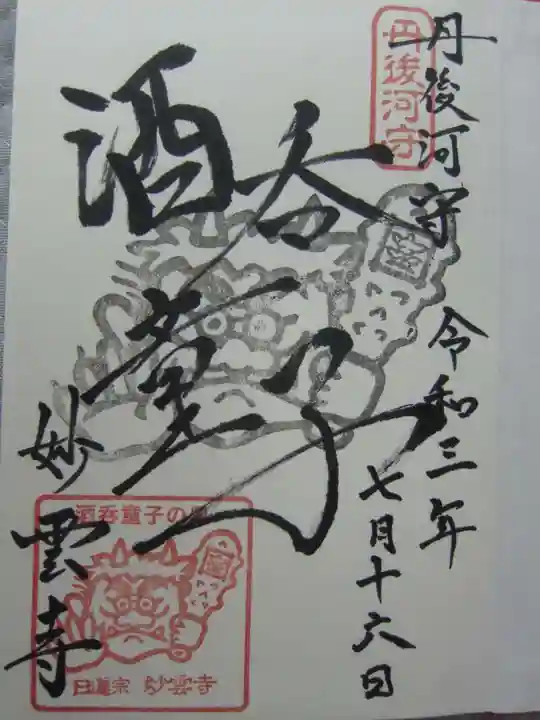 丹後河守
丹後河守 令和三年
七月十六日
酒呑
童子
妙雲寺
酒呑童子の
日蓮宗 妙雲寺